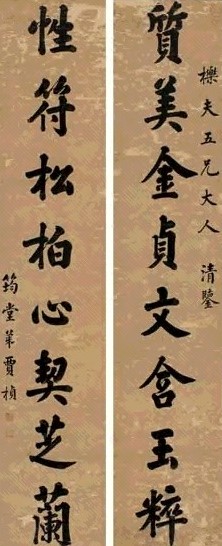 櫟夫五兄大人 清鑒
質美金貞文含玉粹
性符松柏心契芝蘭
筠堂弟賈楨